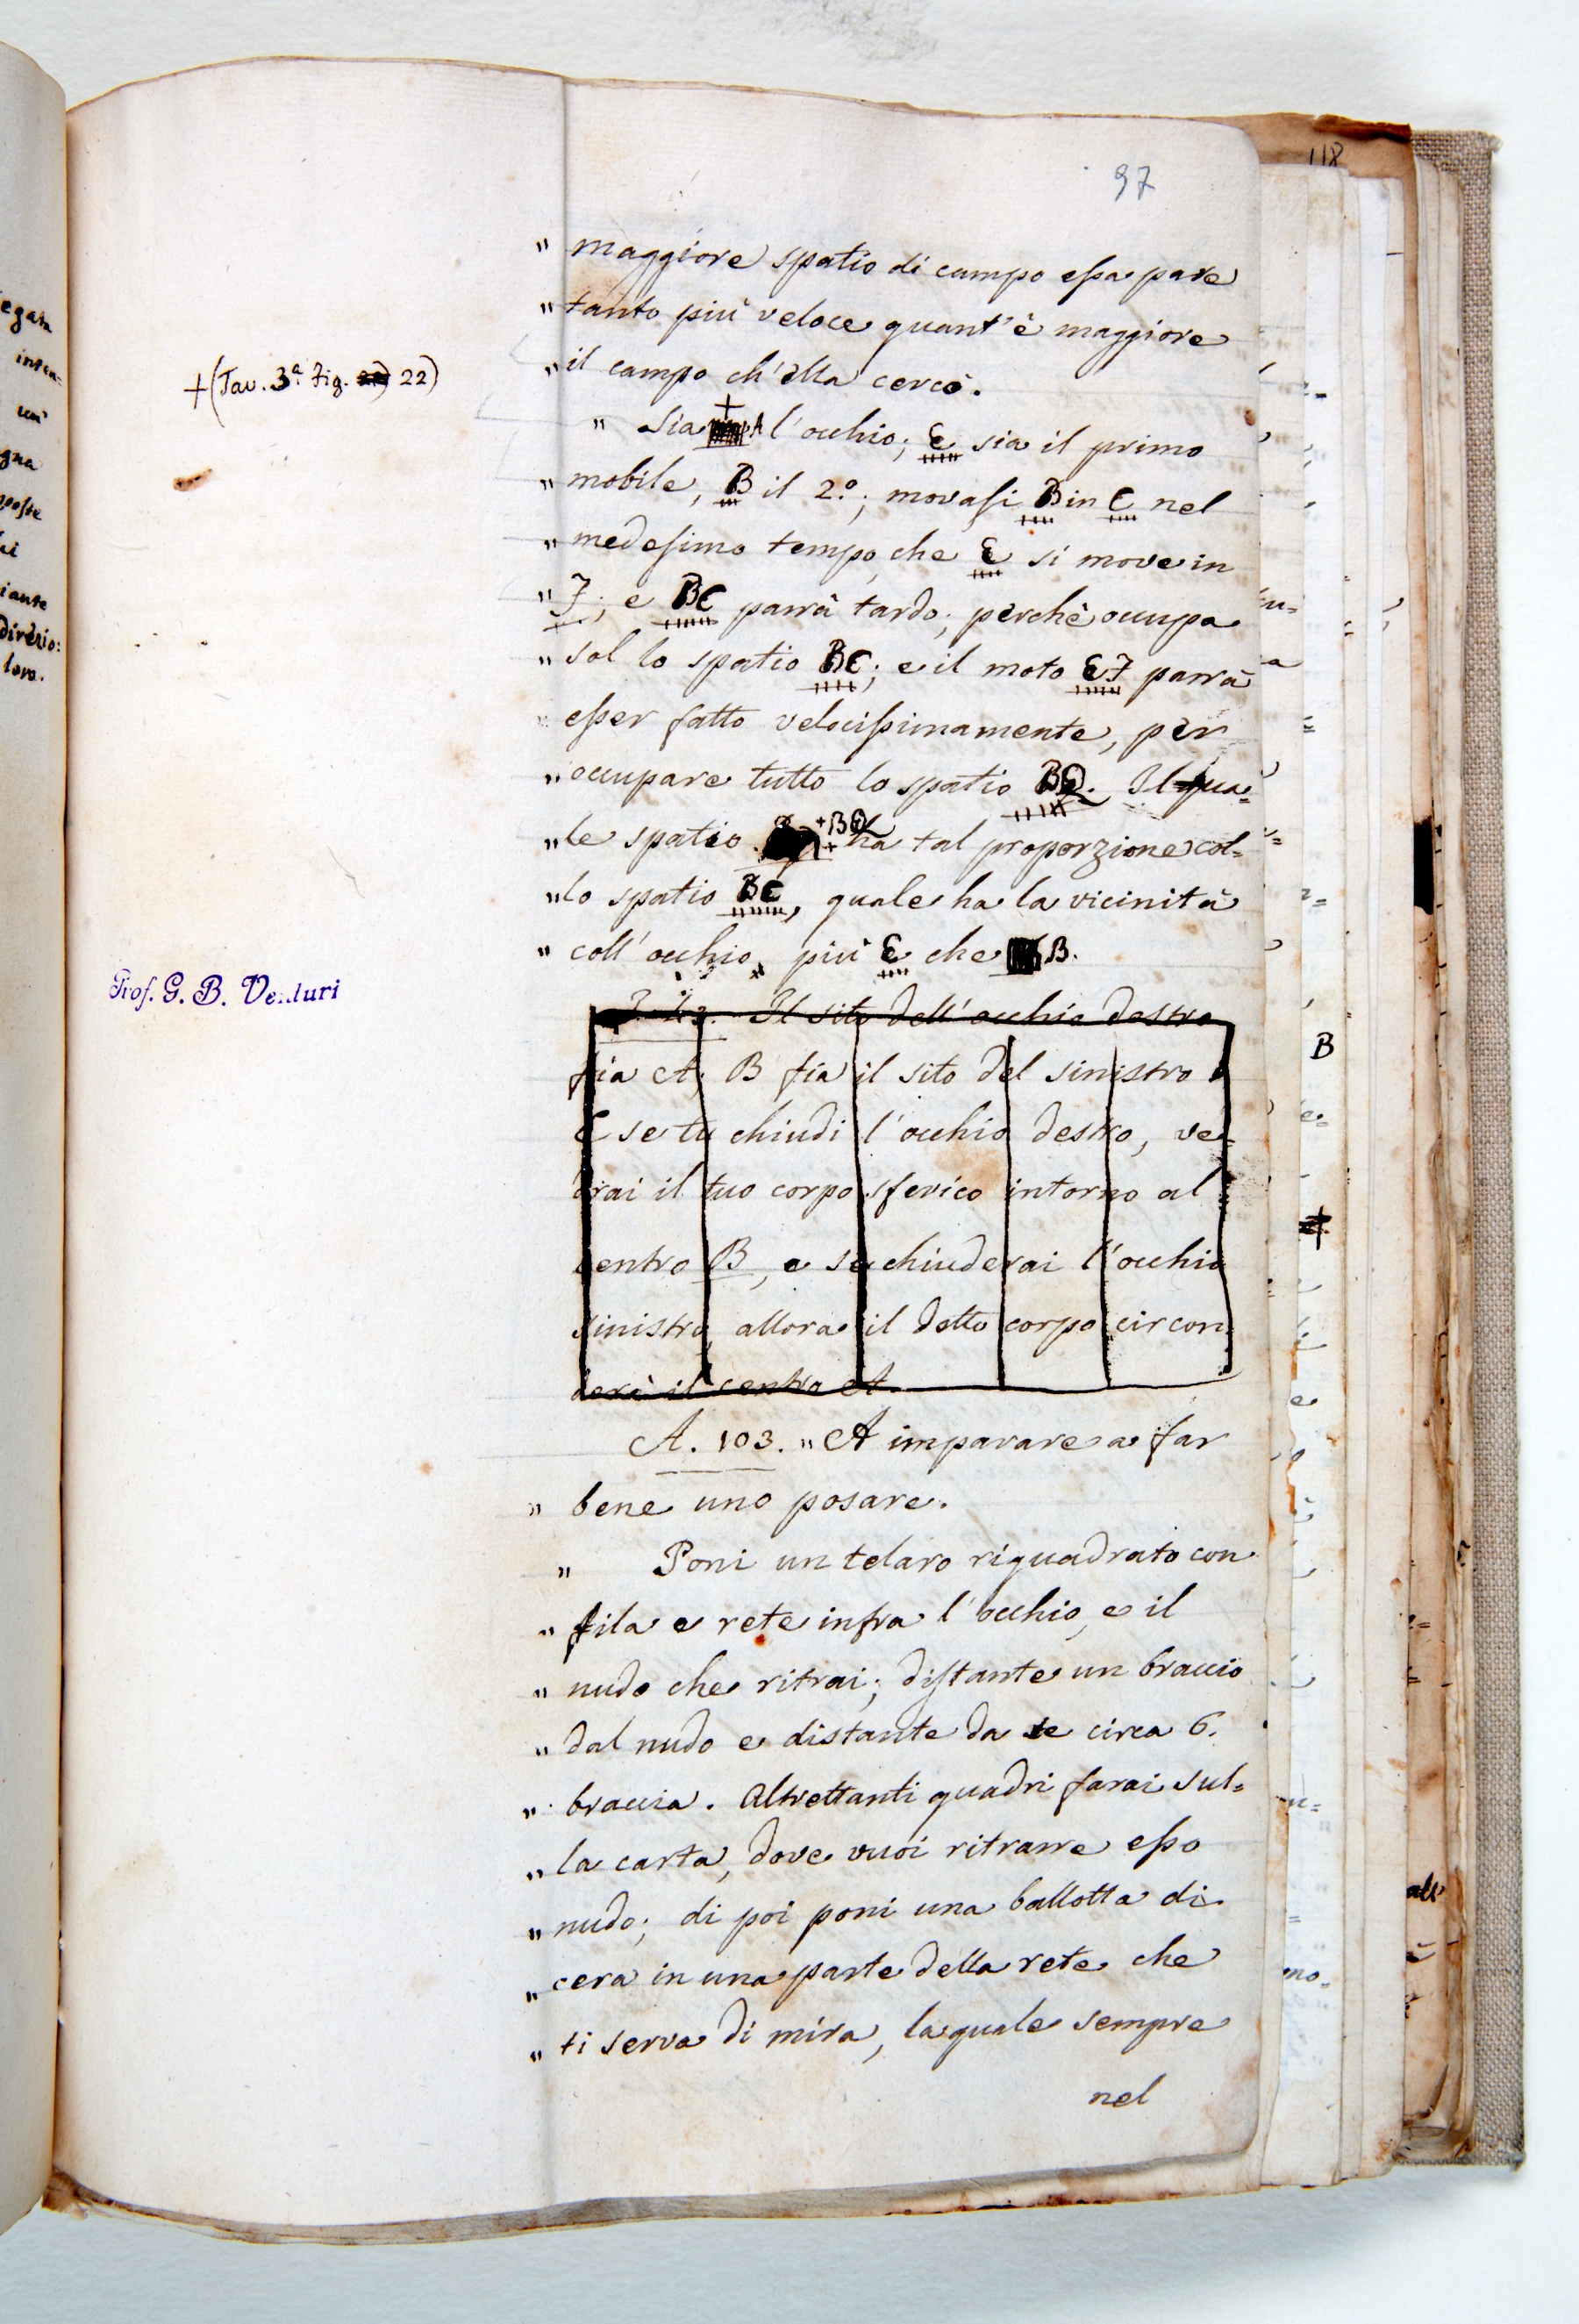 97
118
" maggiore spatio di campo essa pare
" tanto più veloce quant'è maggiore
" il campo ch'ella cercò.
+(Tav. 3.ª Fig. 22)
" Sia + A l'occhio; E sia il primo
" mobile, B il 2.º; movasi B in C nel
" medesimo tempo, che E si move in
" F; e BC parrà tardo; perchè occupa
" sol lo spatio BC; e il moto EF parrà
" esser fatto velocissimamente, per
" occupare tutto lo spatio BQ. Il qua=
" le spatio +BQ ha tal proporzione col=
" lo spatio BC, quale ha la vicinità
" coll'occhio più E che B.
Prof. G. B. Venturi
Il sito dell'occhio destro
fia A; B fia il sito del sinistro
E se tu chiudi l'occhio destro, ve-
drai il tuo corpo sferico intorno al
centro B, e se chiuderai l'occhio
sinistro, allora il detto corpo circon
derà il centro A.
A. 103. " A imparare a far
" bene uno posare.
" Poni un telaro riquadrato con
" fila e rete infra l'occhio, e il
" nudo che ritrai; distante un braccio
" dal nudo e distante da te circa 6.
" braccia. Altrettanti quadri farai sul=
" la carta, dove vuoi ritrarre esso
" nudo; di poi poni una ballotta di
" cera in una parte della rete che
" ti serva di mira, la quale sempre
nel